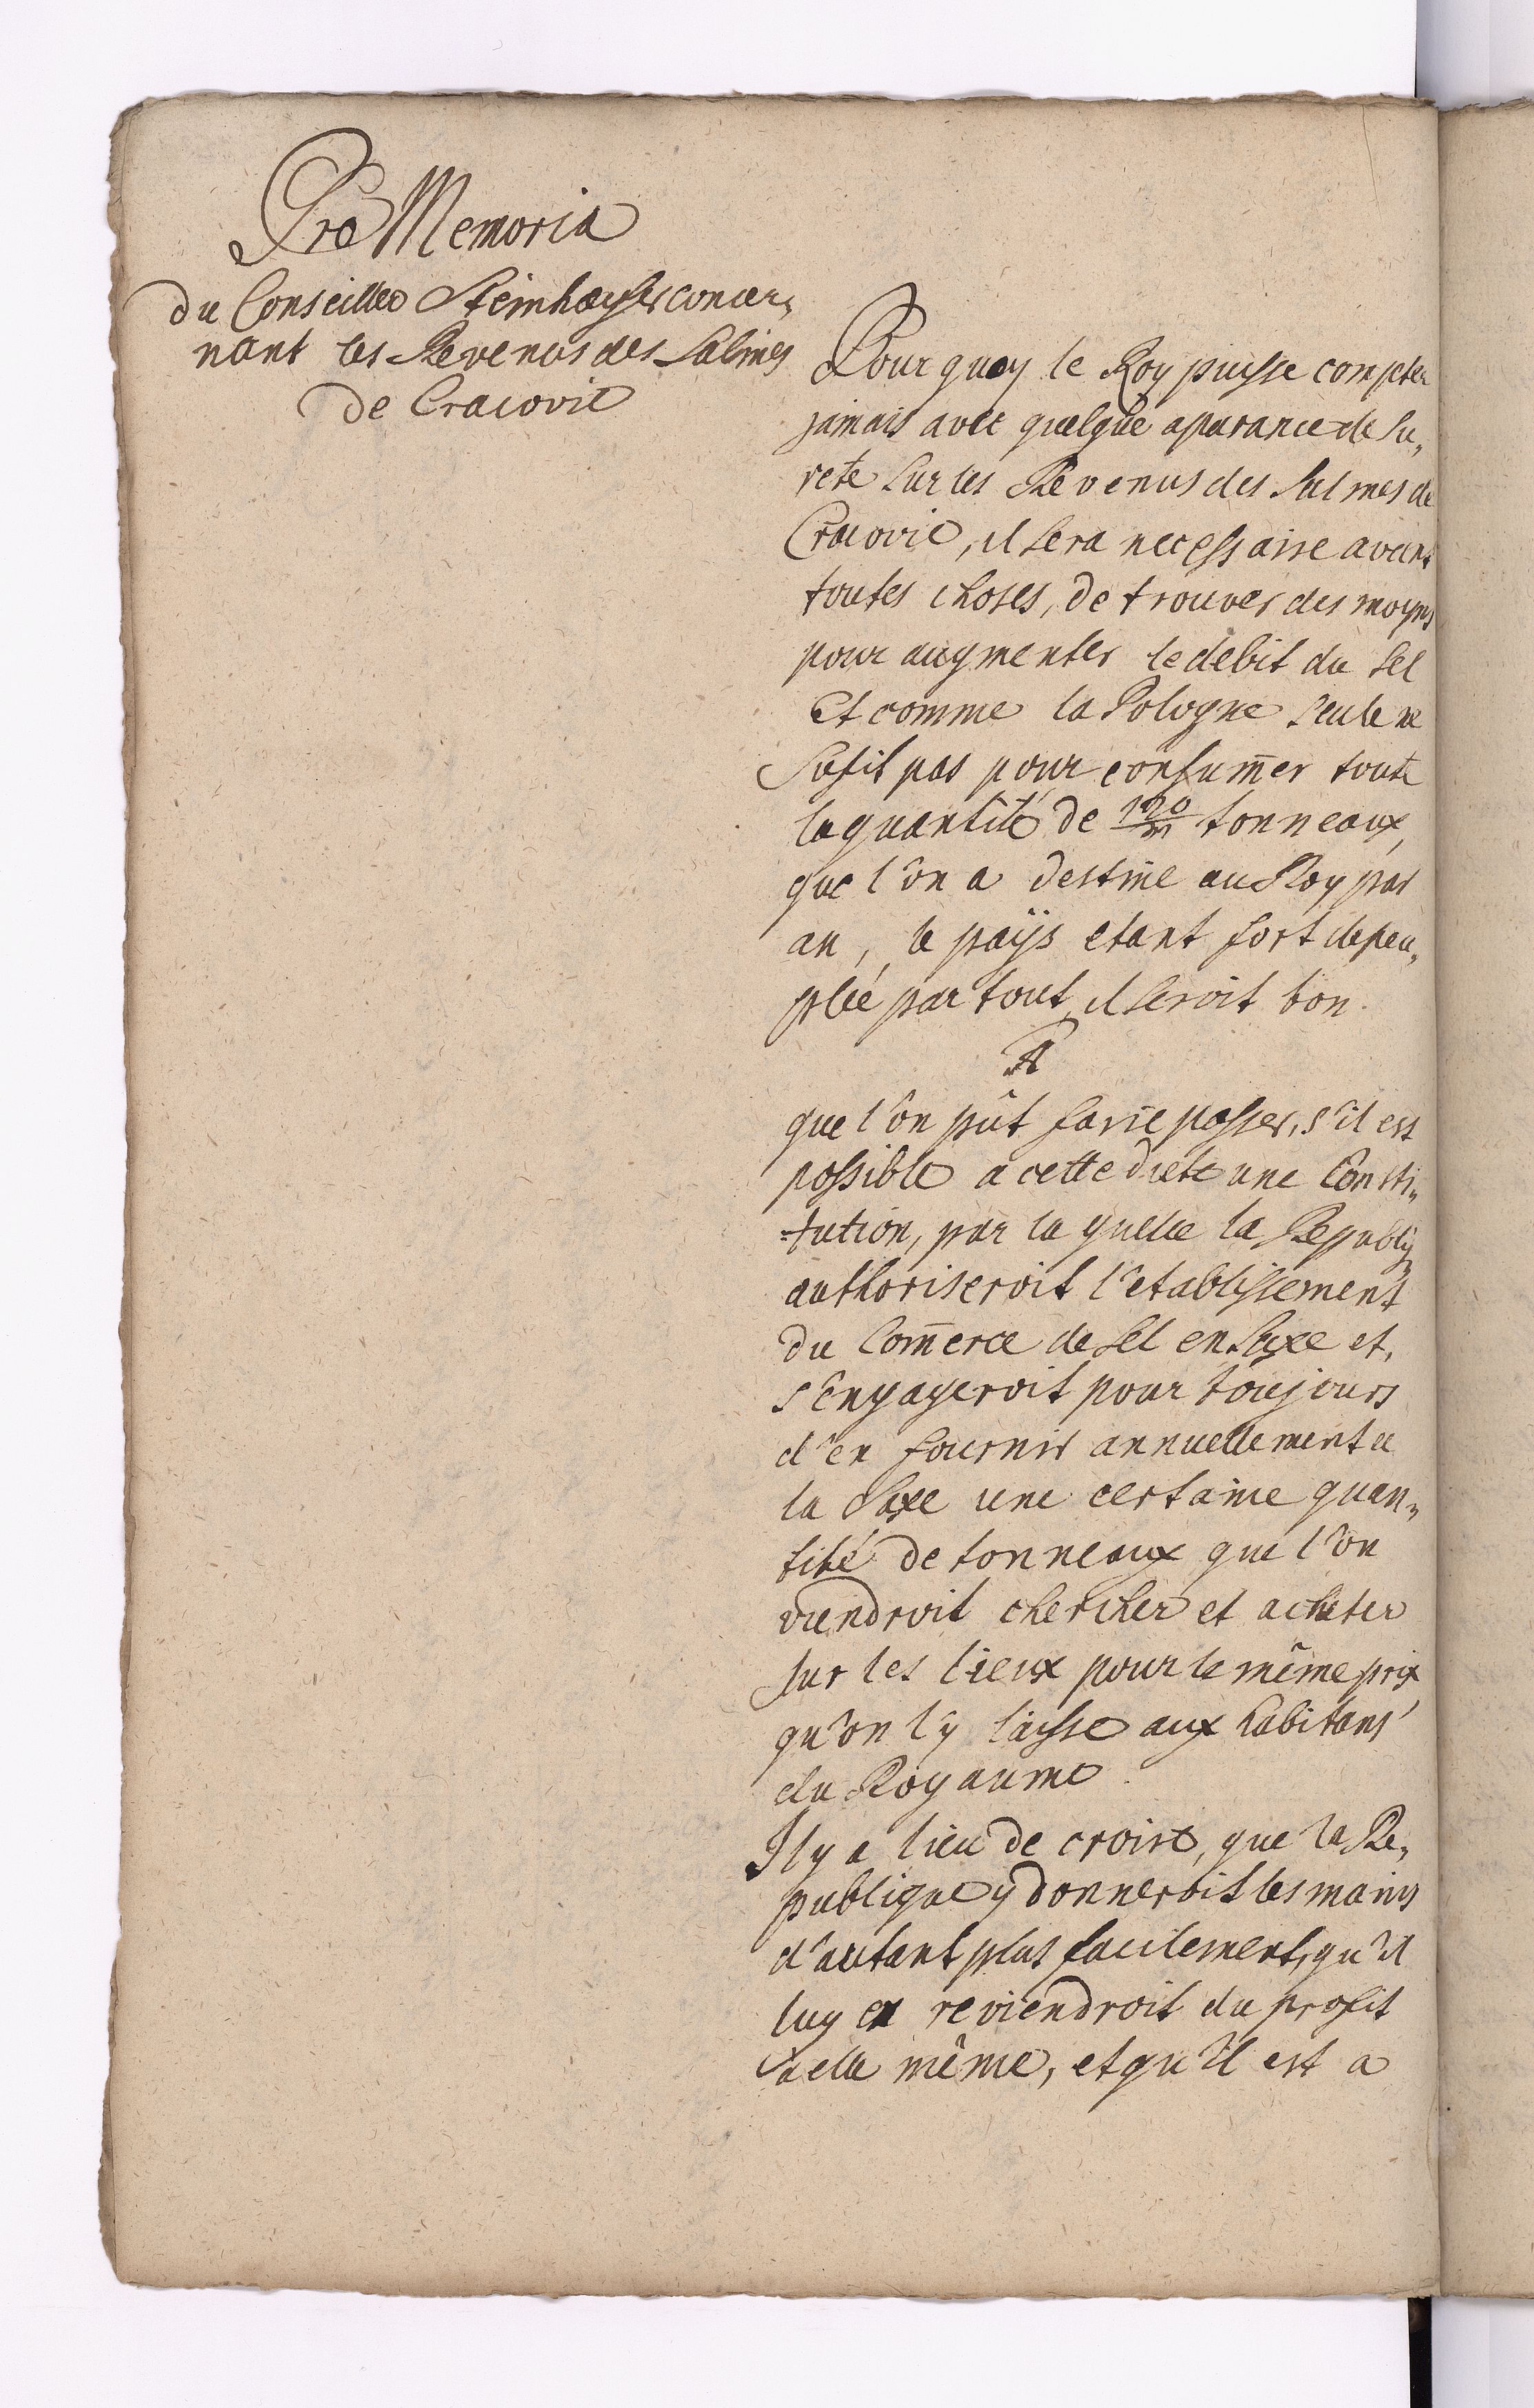 Pro Memoria
du Conseiller Steinhaeuser concer„
nant les Revenus des Salines
de Cracovie
Pour quoy le Roy puisse compter
jamais avec quelque aparance de su„
reté sur les Revenus des Salines de
Cracovie, il sera necessaire avant
toutes choses, de trouver des moyens
pour augmenter le debit du sel
Et comme la Pologne seule ne
sufit pas pour consum̄er toute
la quantité de 120/m tonneaux,
que l'on a destiné au Roy par
an, le païs etant fort depeu„
pleé par tout, il seroit bon.
A
que l'on pût faire passer, s'il est
possible a cette diete une Consti„
tution, par la quelle la Republiq
authoriseroit l'etablissement
du Com̄erce de sel en Saxe et,
s'engageroit pour toujours
d'en fournir annuellement a
la Saxe une certaine quan„
tité de tonneaux que l'on
viendroit chercher et acheter
sur les lieux pour le même prix
qu'on l'y laisse aux habitans
du Royaume.
Il y a lieu de croire, que la Re„
publique y donneroit les mains
d'autant plus facilement, qu'il
luy en reviendroit du profit
a elle même, et qu'il est a